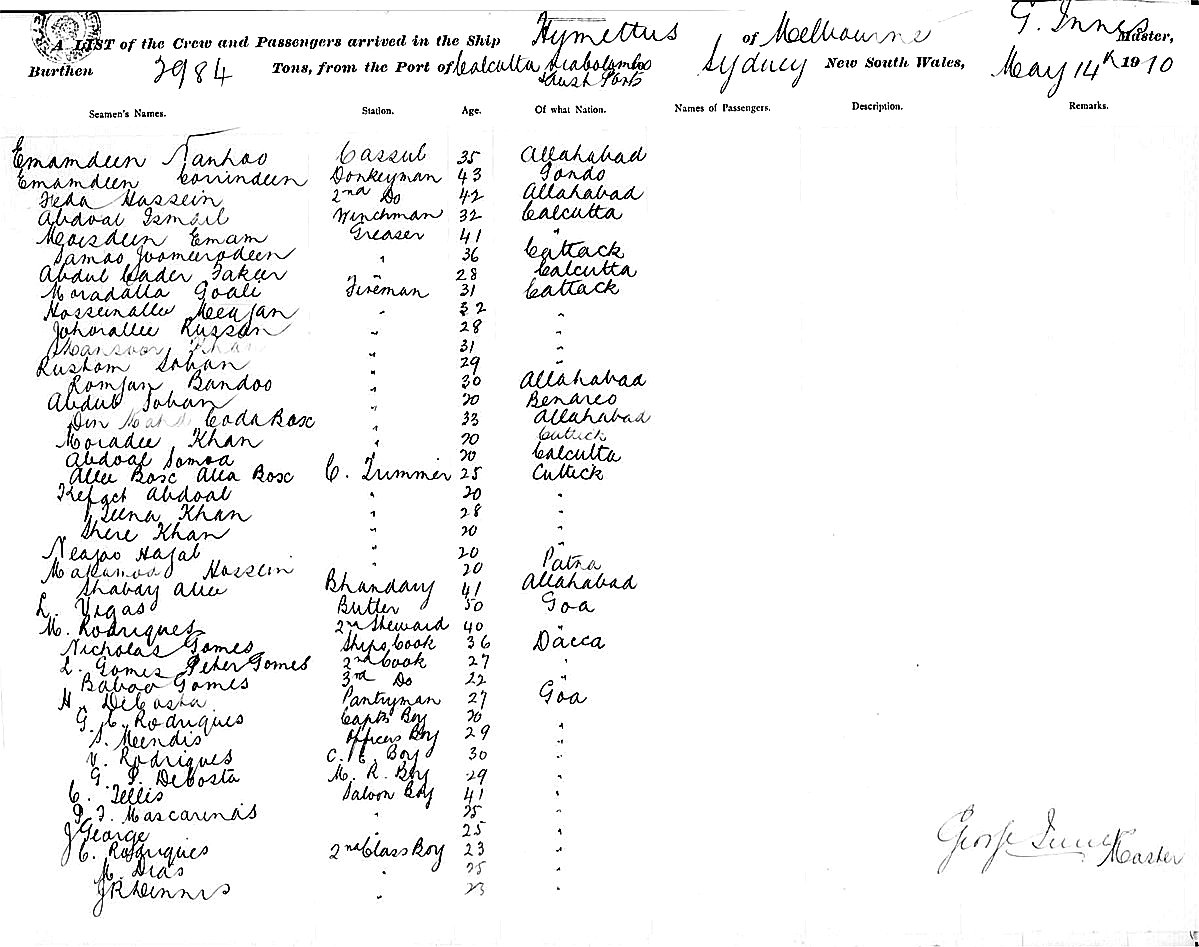 A LIST of the Crew and Passengers arrived in the Ship Hymettus of Melbourne G. Innes Master,
Burthen 2984 Tons, from the Port of Calcutta via Colombo & Aust Ports Sydney New South Wales, May 14th 1910
Seamen's Names. Station. Age. Of what Nation. Names of Passengers. Description. Remarks.
Emamdeen Nanhoo Cassul 35 Allahabad
Emamdeen Corrindeen Donkeyman 43 Gondo
Feda Hossein 2nd Do 42 Allahabad
Abdool Ismail Winchman 32 Calcutta
Moisdeen Emam Greaser 41 "
Jamoo Joomerodeen " 36 Cattack
Abdul Cader Fakir " 28 Calcutta
Moradalla Goali Fireman 31 Cattack
Hosseinallee Meajan " 32 "
Johorallee Russan " 28 "
Mansoor Khan " 31 "
Rustom Sohan " 29 "
Romjan Bandoo " 30 Allahabad
Abdul Sohan " 20 Benares
Din Coda Bosc " 33 Allahabad
Moradee Khan " 20 Cuttick
Abdoal Samoa " 20 Calcutta
Allee Bosc Alla Bosc C. Trimmer 25 Cuttick
Abdoal " 20 "
Khan " 28 "
Shere Khan " 20 "
Neajoo Hajal " 20 "
Hossein " 20 Patna
Shabay Alice Bhandary 41 Allahabad
L. Vigas Butler 50 Goa
M. Rodriques 2nd Steward 40 "
Nicholas Gomes Ships Cook 36 Dacca
L. Gomes Peter Gomes 2nd Cook 27 "
Baboo Gomes 3rd Do 22 "
H. DeCosta Pantryman 27 Goa
G. C. Rodriques Capts Boy 20 "
S. Mendis Officers Boy 29 "
V. Rodriques C. E. Boy 30 "
G. P. DeCosta M. R. Boy 29 "
C. Tellis Saloon Boy 41 "
P. F. Mascarinas " 25 "
J George " 25 "
C. Rodriques 2nd Class Boy 23 "
M. Dias " 25 "
J R Dennis " 23 "
George Innes Master